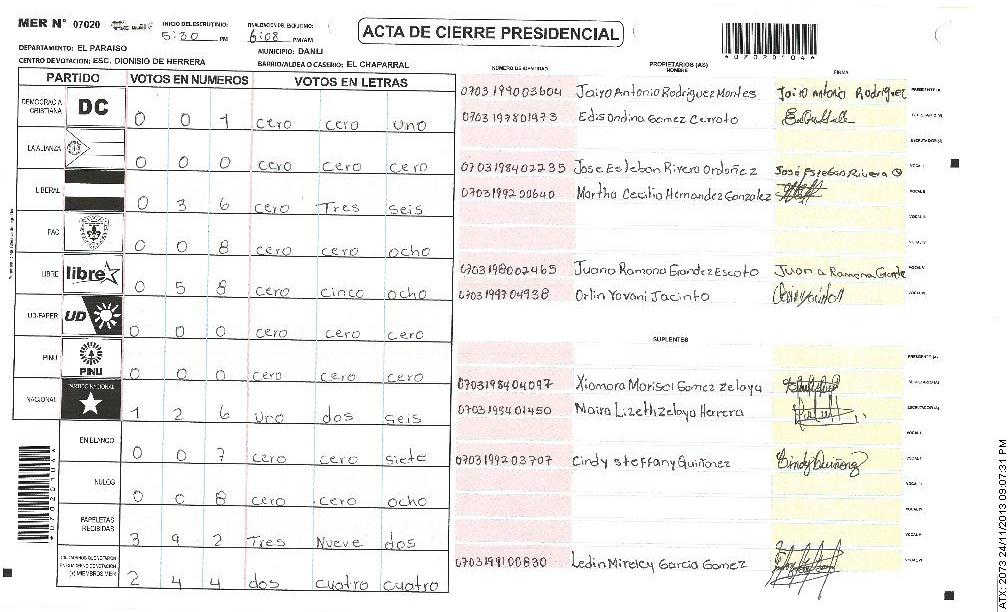 MER N° 07020
INICIO DEL ESCRUTINIO:
5:30 PM
6:08 PM/AM
ACTA DE CIERRE PRESIDENCIAL
*07020104*
DEPARTAMENTO: EL PARAISO
MUNICIPIO: DANLI
CENTRO DE VOTACION: ESC. DIONISIO DE HERRERA
BARRIO/ALDEA O CASERIO: EL CHAPARRAL
PARTIDO VOTOS EN NUMEROS VOTOS EN LETRAS
DEMOCRACIA CRISTIANA DC 0 0 1 cero cero uno
LA ALIANZA 0 0 0 cero cero cero
LIBERAL 0 3 6 cero Tres seis
PAC 0 0 8 cero cero ocho
LIBRE libre 0 5 8 cero cinco ocho
UD-FAPER UD 0 0 0 cero cero cero
PINU PINU 0 0 0 cero cero cero
NACIONAL PARTIDO NACIONAL 1 2 6 uno dos seis
EN BLANCO 0 0 7 cero cero siete
NULOS 0 0 8 cero cero ocho
PAPELETAS RECIBIDAS 3 9 2 Tres Nueve dos
(+) MIEMBROS MER 2 4 4 dos cuatro cuatro
NUMERO DE IDENTIDAD
PROPIETARIOS (AS)
NOMBRE
FIRMA
0703199003604 Jairo Antonio Rodriguez Montes Jairo Antonio Rodriguez PRESIDENTE (A)
0703197801973 Edis Ondina Gomez Cerrato
ESCRUTADOR (A)
0703198402235 Jose Esteban Rivera Ordoñez José Esteban Rivera O VOCAL I
0703199200640 Martha Cecilia Hernandez Gonzalez VOCAL II
VOCAL III
VOCAL IV
0703198002465 Juana Ramona Grandez Escoto VOCAL V
0703199704938 Orlin Yovani Jacinto VOCAL VI
SUPLENTES
PRESIDENTE (A)
0703198404097 Xiomara Marisol Gomez Zelaya SECRETARIO (A)
0703198401450 Maira Lizeth Zelaya Herrera ESCRUTADOR (A)
VOCAL I
0703199203707 Cindy Steffany Quiñonez Cindy Quiñonez VOCAL II
VOCAL III
VOCAL IV
VOCAL V
0703199100830 Ledin Mirelcy Garcia Gomez VOCAL VI
*07020104*
ATX: 2073 24/11/2013 09:07:31 PM